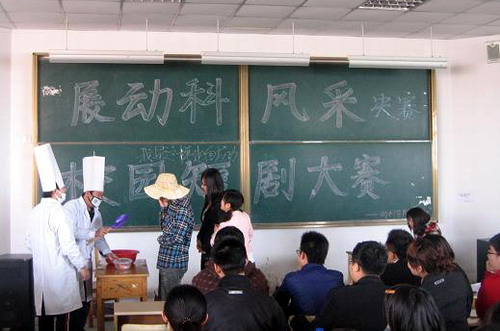 展动科风采决赛
校园短剧大赛